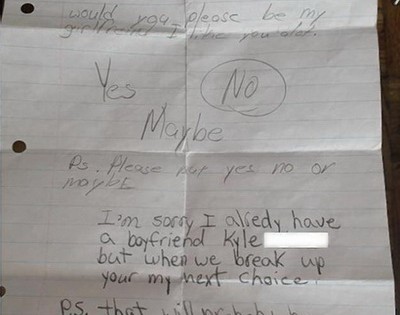 would you please be my
girlfriend I like you alot.
Yes NO
Maybe
Ps. Please put yes no or
maybe
I'm sorry I alredy have
a boyfriend Kyle
but when we break up
your my next choice.
P.S. that will probably b